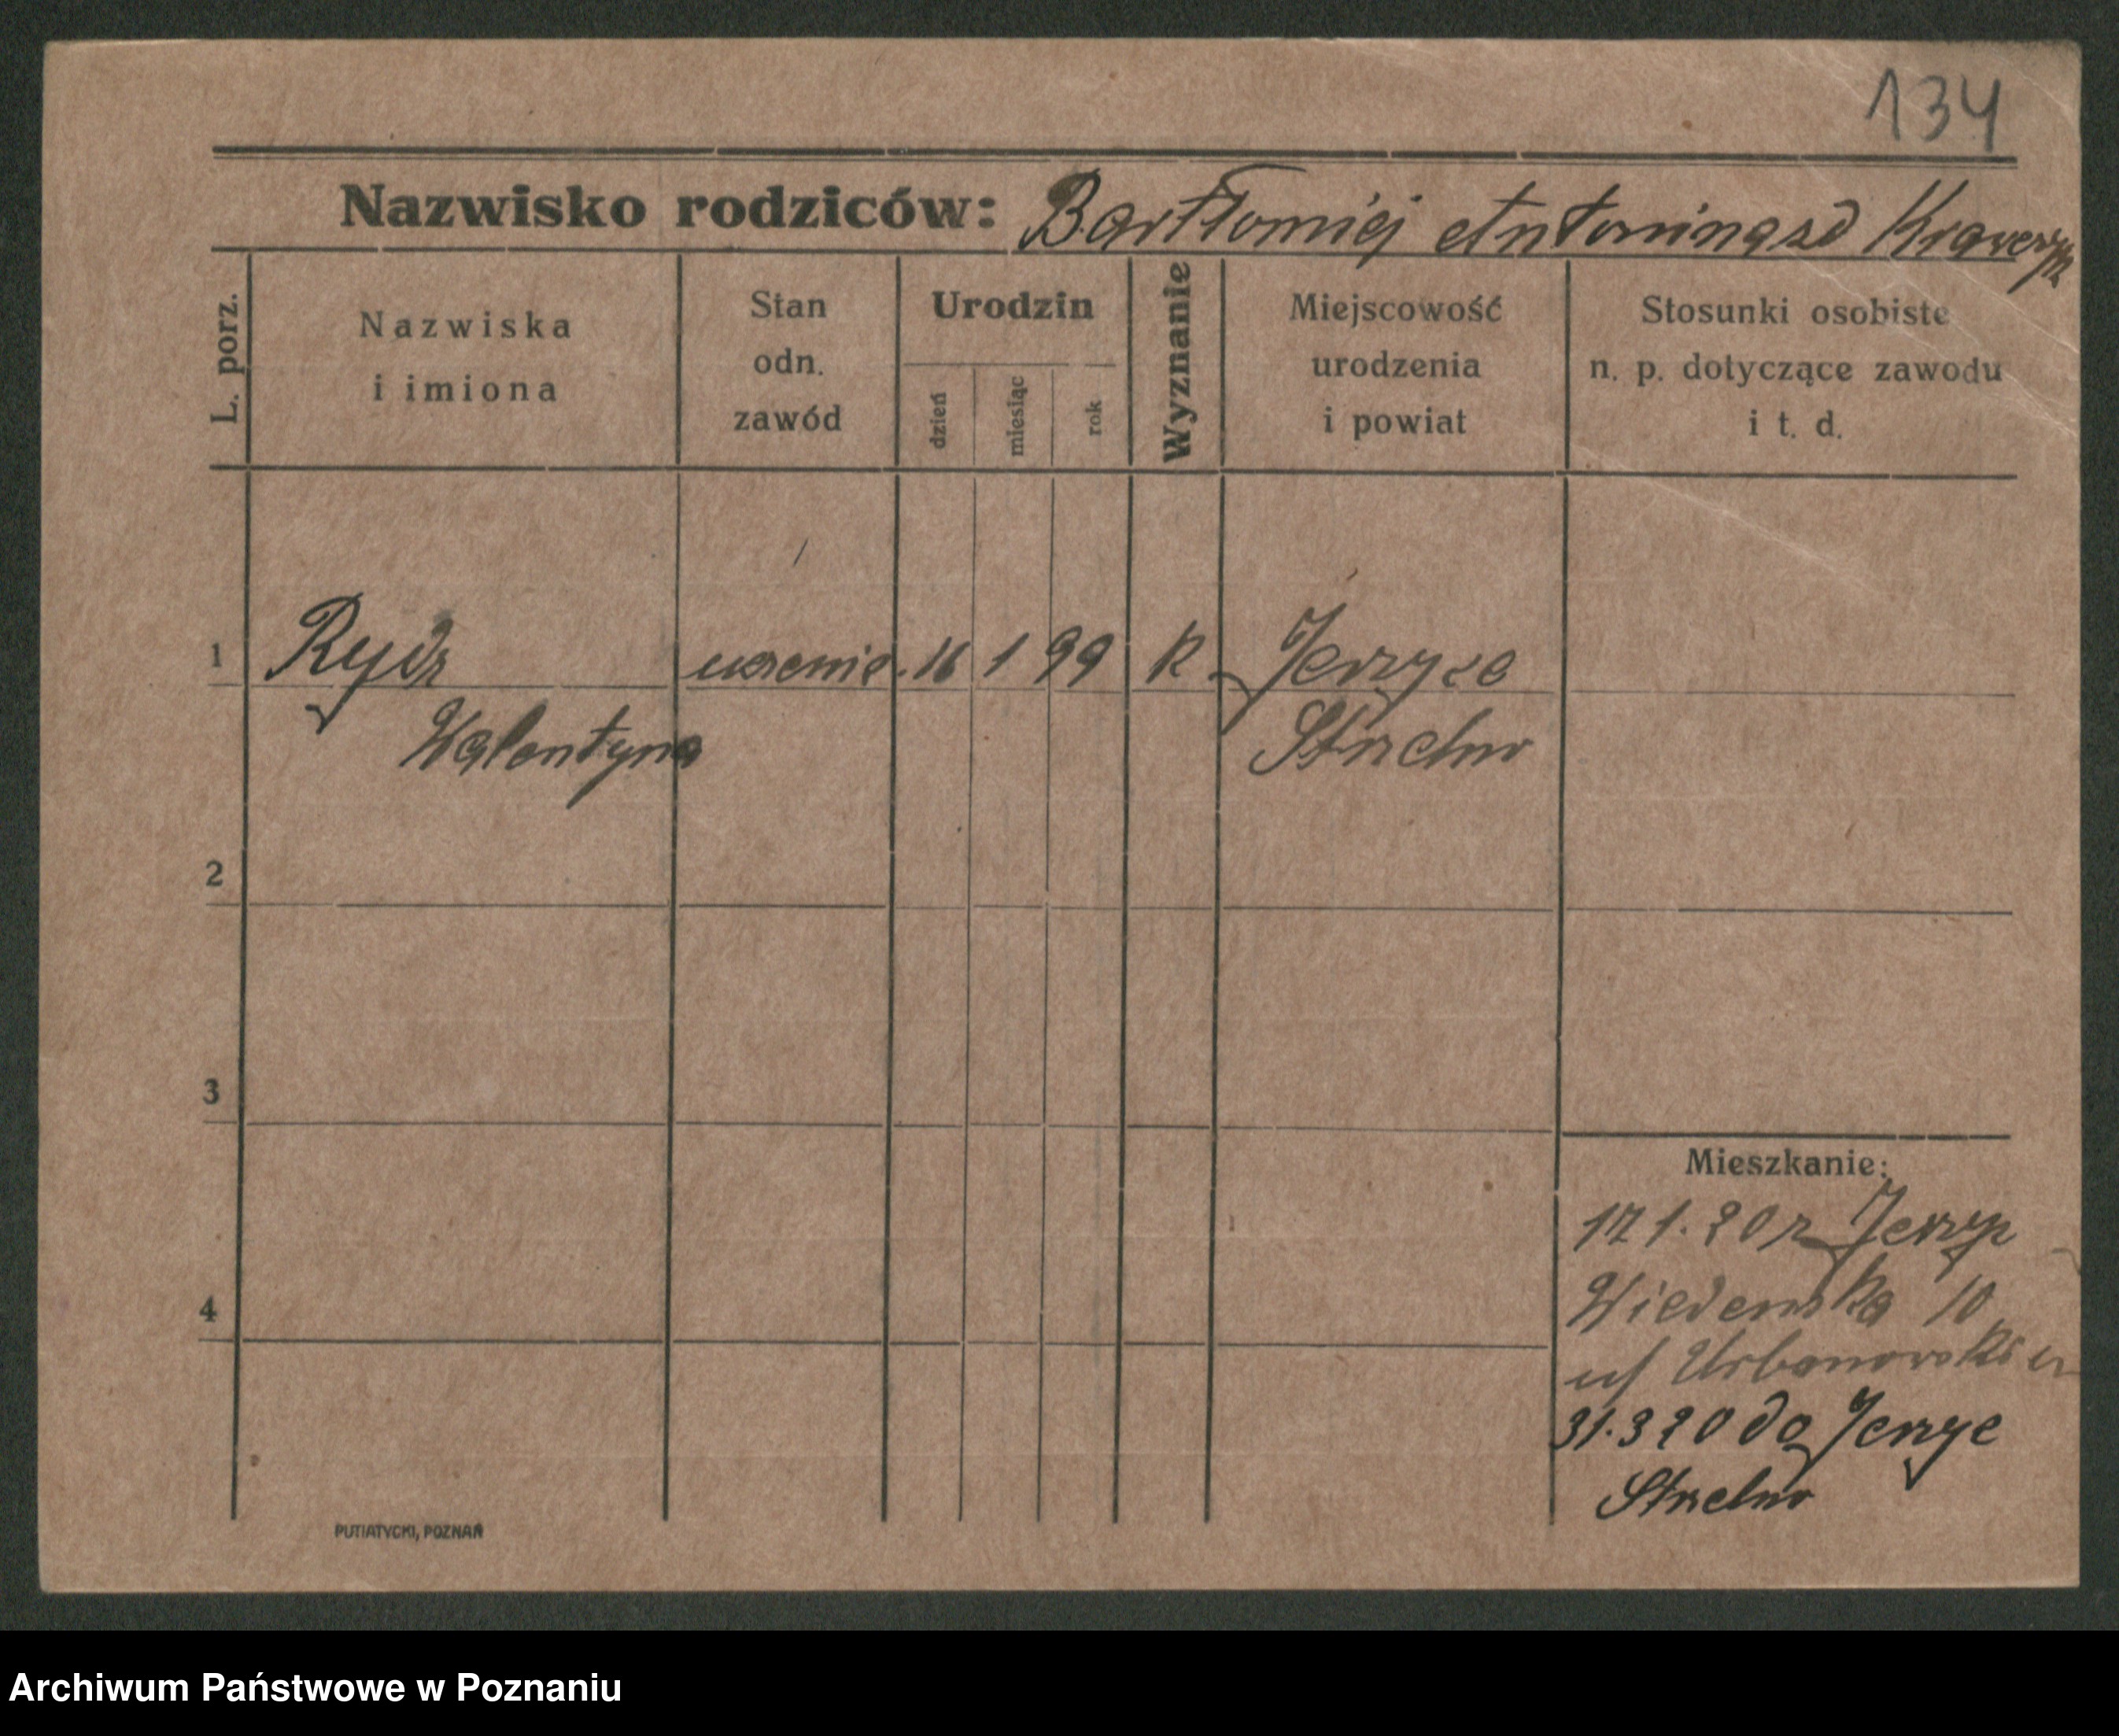 134
Nazwisko rodziców: Bartłomiej Antonina zd Krawczyk
L. porz.
Nazwiska
i imiona
Stan
odn.
zawód
Urodzin
dzień
miesiąc
rok
Wyznanie
Miejscowość
urodzenia
i powiat
Stosunki osobiste
n. p. dotyczące zawodu
i t. d.
1 Rydz 16 1 99 K Jerzyce
Walentyna Strzelno
2
3
4
Mieszkanie:
17 1. 20 r Jerzyc
Wiedenska 10
31. 3 20 do Jerzyc
Strzelno
PUTIATYCKI, POZNAŃ
Archiwum Państwowe w Poznaniu